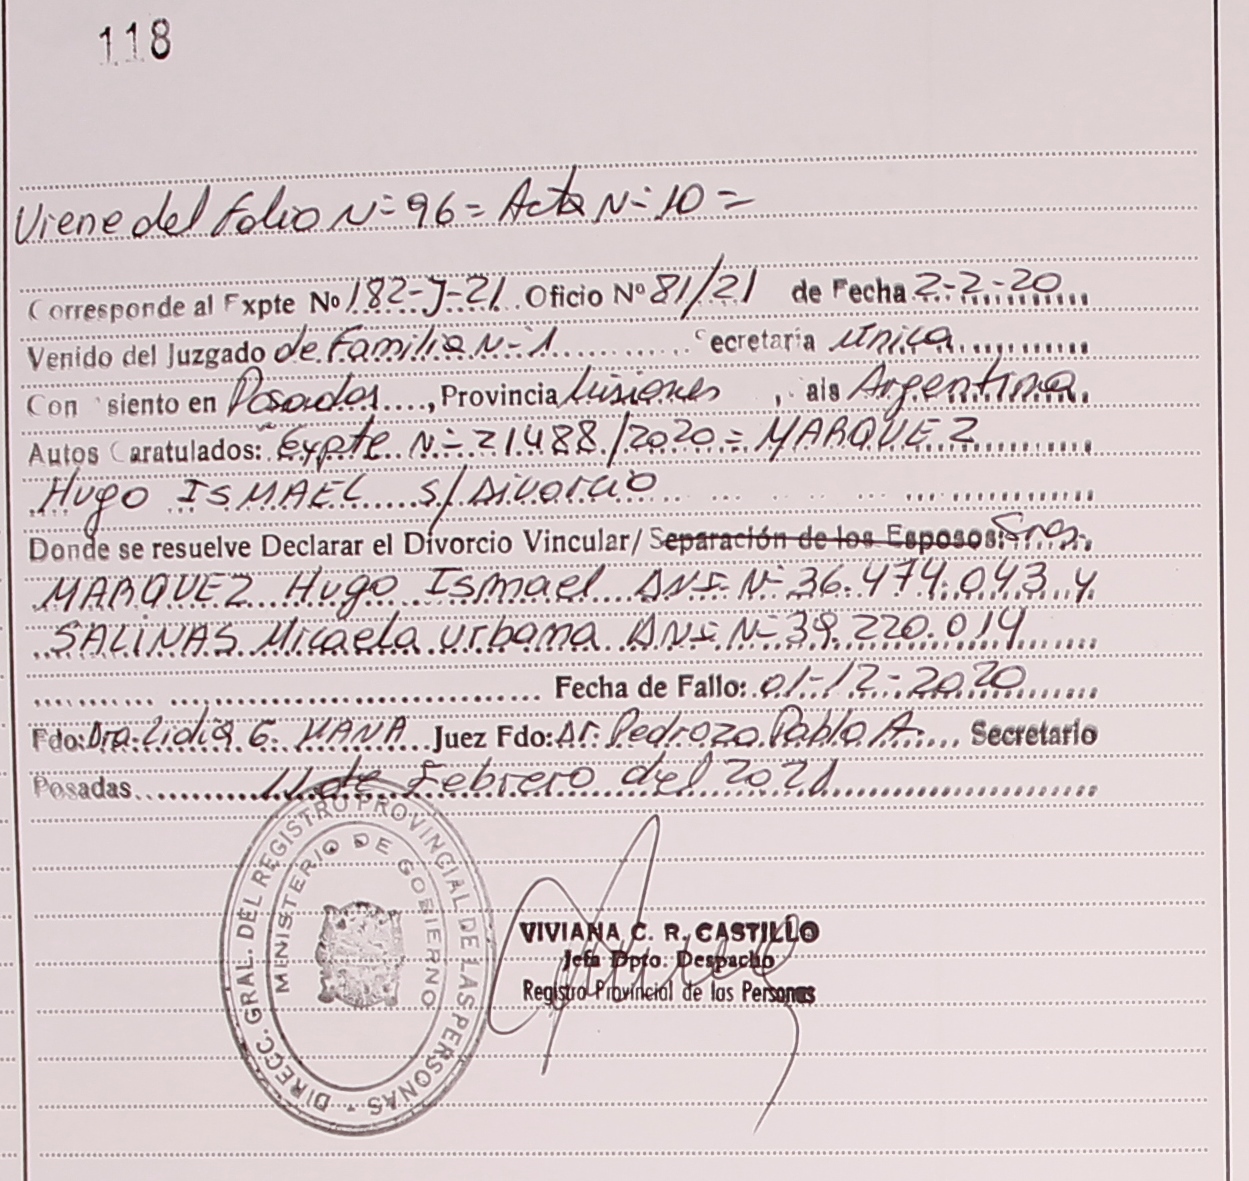 118
Viene del folio N= 96 = Acta N= 10 =
Corresponde al Expte Nº 182-J-21 Oficio Nº 81/21 de Fecha 2-2-20
Venido del Juzgado de Familia N- 1 Secretaría Unica
Con siento en Posadas, Provincia Misiones, ais Argentina
Autos Caratulados: Expte N= 21488/2020 = MARQUEZ
Hugo ISMAEL s/ Divorcio
Donde se resuelve Declarar el Divorcio Vincular/ Separación de los Esposos: Sres.
MARQUEZ Hugo Ismael DNI N- 36.474.043 y
SALINAS Micaela Urbana DNI N- 39.220.014
Fecha de Fallo: 01-12-2020
Fdo: Dra. Lidia G. Juez Fdo: Dr. Pedrozo Pablo A. Secretario
Posadas 11 de Febrero del 2021
DIRECC. GRAL. DEL REGISTRO PROVINCIAL DE LAS PERSONAS
MINISTERIO DE GOBIERNO
VIVIANA C. R. CASTILLO
Jefa Dpto. Despacho
Registro Provincial de las Personas